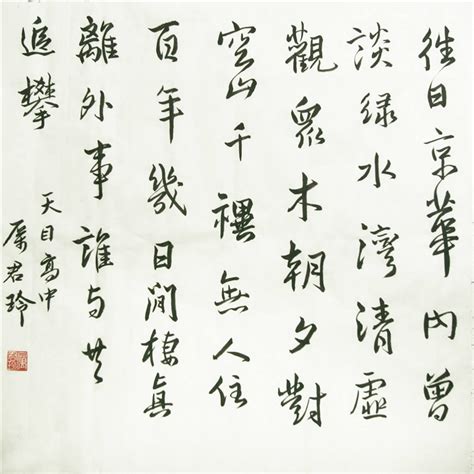 往日京華內曾
談綠水灣清虛
觀眾木朝夕對
空山千禩無人住
百年幾日閒棲真
離外事誰与共
追攀
天目高中
君玲